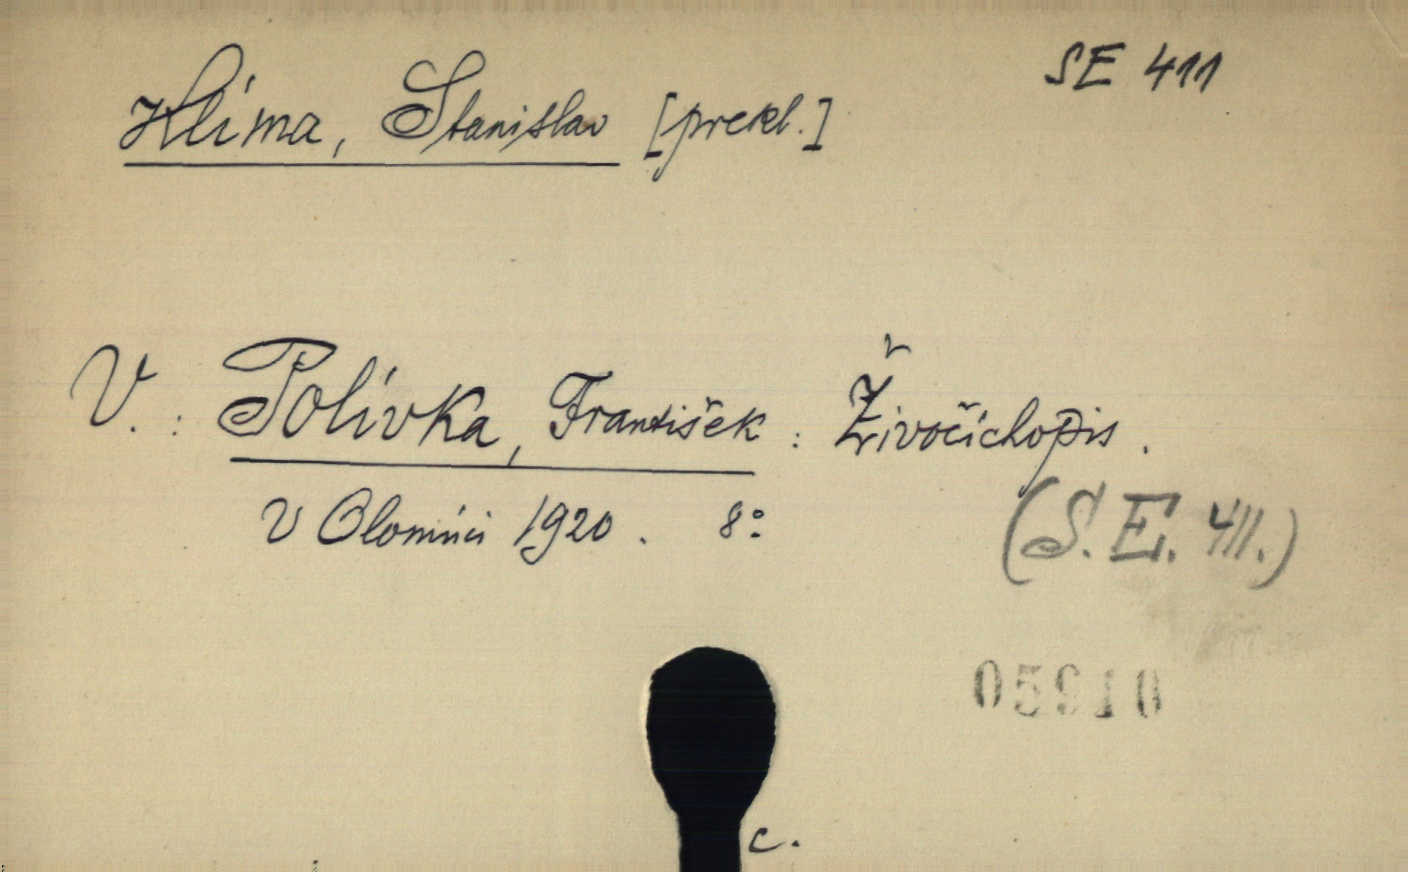 SE 411
Klíma, Stanislav [prekl.]
V. : Polívka, František : Živočíchopis.
V Olomúci 1920. 8°
(S. E. 411.)
05910
c.